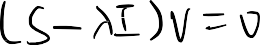 (S - λI)v = 0